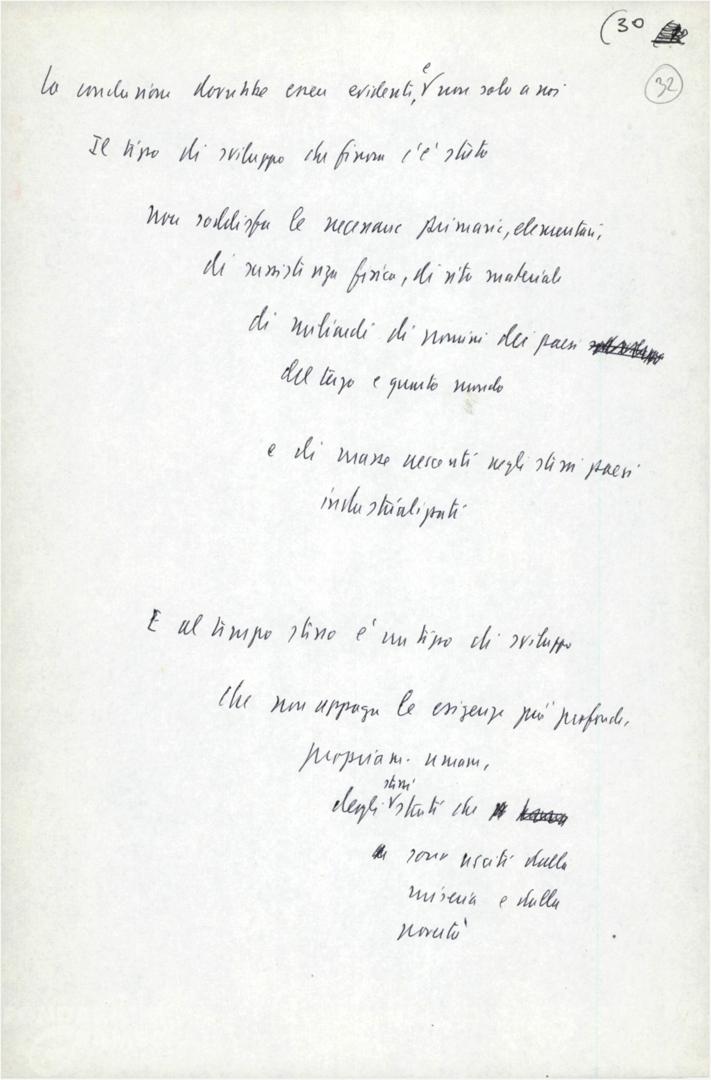 (30
32
La conclusione dovrebbe essere evidente, e non solo a noi
Il tipo di sviluppo che finora c'è stato
non soddisfa le necessarie primarie, elementari,
di sussistenza fisica, di vita materiale
di miliardi di uomini dei paesi
del terzo e quarto mondo
e di masse crescenti negli stessi paesi
industrializzati
E al tempo stesso è un tipo di sviluppo
che non appaga le esigenze più profonde,
propriam. umane,
degli stessi strati che
sono usciti dalla
miseria e dalla
povertà